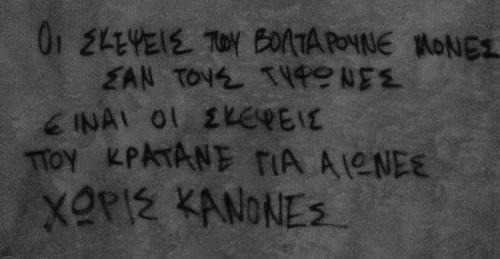 Οι ΣΚΕΨΕΙΣ ΠΟΥ ΒΟΛΤΑΡΟΥΝΕ ΜΟΝΕΣ
ΣΑΝ ΤΟΥΣ ΤΥΦΩΝΕΣ
ΕΙΝΑΙ ΟΙ ΣΚΕΨΕΙΣ
ΠΟΥ ΚΡΑΤΑΝΕ ΓΙΑ ΑΙΩΝΕΣ
ΧΩΡΙΣ ΚΑΝΟΝΕΣ